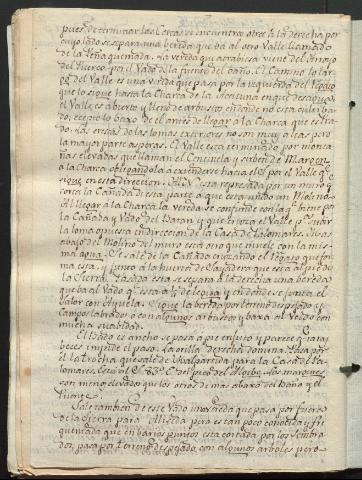 pues de terminar las Cercas se encuentra otra à la derecha por
cuyo lado se separa una bereda que bà al otro Valle llamado
de la Peña quemada. La vereda que atrabiesa viene del Arroyo
del Puerco por el Vado de la fuente del baño. El Camino lo lar-
go del Valle es una vereda que pasa por la izquierda del
que lo sigue hasta la Charca de la en que desaguas
el Valle es abierto y lleno de arbustos en donde no està cultiba-
do, ecepto lo bajo de el antes de llegar à la Charca que es tra-
do. Las crestas de las lomas exteriores no son muy altas pero
la mayor parte asperas. El Valle està terminado por monta-
ñas elevadas que llaman el y sirben de Margen
à la Charca obligandola à extenderse hacia el E por el Valle que
sigue en esta direccion. Al N. està represada por un muro que
corta la Cañada à esta parte à que està unido un Molino.
Al llegar à la Charca la vereda se confunde con la que biene por
la Cañada y Vado del y que trabeza el Valle p.r subir
la loma opuesta en direccion de la Casa de Palomares. Mas
abajo del Molino del muro està otro que muele con la mis-
ma agua. Se sale de la Cañada cruzando el que for-
ma esta, y junto à la huerta de que està al pie de
la Sierra. Pasada esta se separa à la derecha una bereda
que bà al Vado q.e està à 1/2 de legua y en donde se junta el
Salor con Ayuela. Sigue la bereda por terreno despejado y
Campos labrados ò con algunos arbustos y baxa al Vado con
mucha suabidad.
El Vado es ancho se pasa à pie enjuto y parece q.e raras
beces impide el paso. La orilla derecha domina. Pasa por
èl la trocha que sale de para la Casa de Pa-
lomares. Està al S. 83º E. del pico del . Las margenes
son menos elevadas que los otros de mas abaxo del Baño y el
Puente.
Sale tambien de este Vado una vereda que pasa por fuera
de la Sierra para Alcuesca pero es tan poco conocida y fre-
quentada que en varios puntos està cortada por los sembra-
dos, pasa por terreno despejado con algunos arboles pero